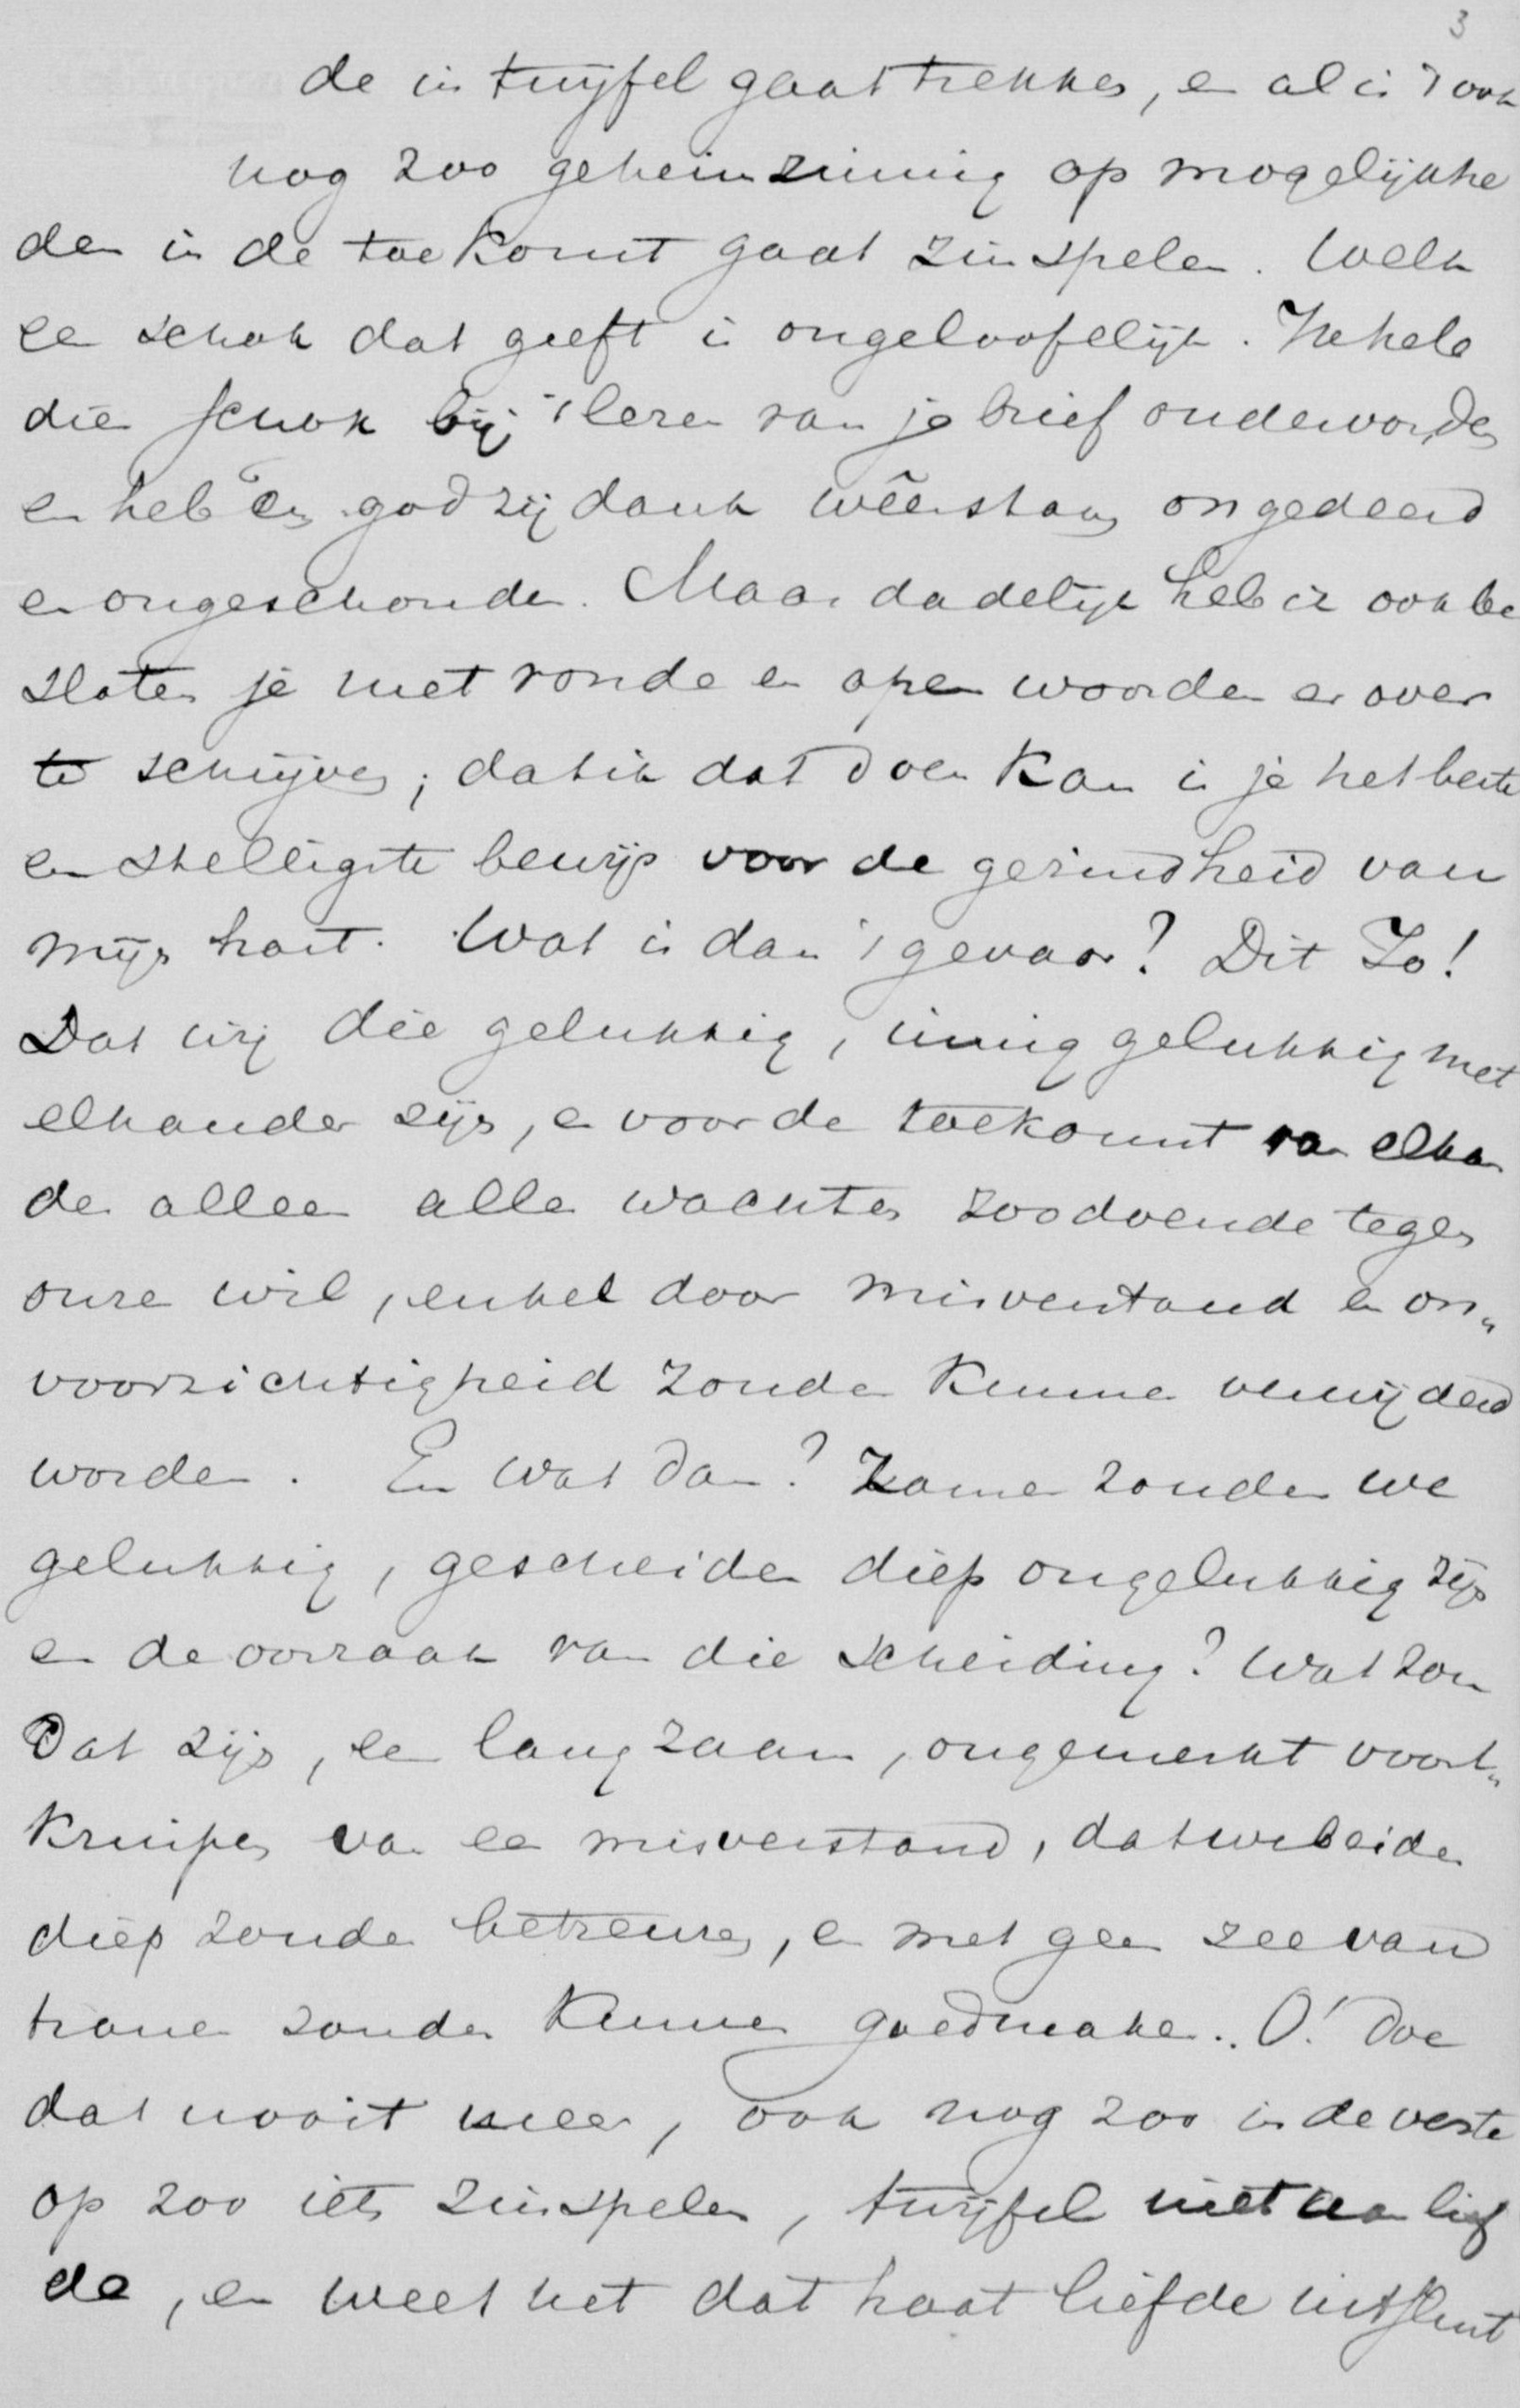 3
de in twijfel gaat trekken, en al is 't ook
nog zoo geheimzinnig op mogelijkhe
den in de toekomst gaat zinspelen. Welk
een schok dat geeft is ongeloofelijk. Ik heb
die schok bij 't lezen van je brief ondervonden
en heb en god zij dank wêerstaan ongedeerd
en ongeschonden. Maar dadelijk heb ik ook be
sloten je met ronde en open woorden er over
te schrijven; dat ik dat doen kan is je het beste
en stelligste bewijs voor de gezindheid van
mijn hart. Wat is dan 't gevaar? Dit Jo!
Dat wij die gelukkig, innig gelukkig met
elkander zijn, en voor de toekomst van elkan
der alleen alles wachten zoodoende tegen
onze wil, enkel door misverstand en on„
voorzichtigheid zouden kunnen verwijderd
worden. En wat dan? Zamen zouden we
gelukkig, gescheiden diep ongelukkig zijn
en de oorzaak van die scheiding? Wat zou
dat zijn, een langzaam, ongemerkt voort„
kruipen van een misverstand, dat we beiden
diep zouden betreuren, en met geen zee van
tranen zouden kunnen goedmaken. O! doe
dat nooit meer, ook nog zoo in de verste
op zoo iets zinspelen, twijfel niet aan lief
de, en weet het dat haat liefde uitsluit